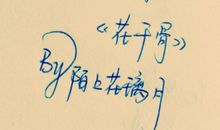 《花千骨》
By陌上花璃月